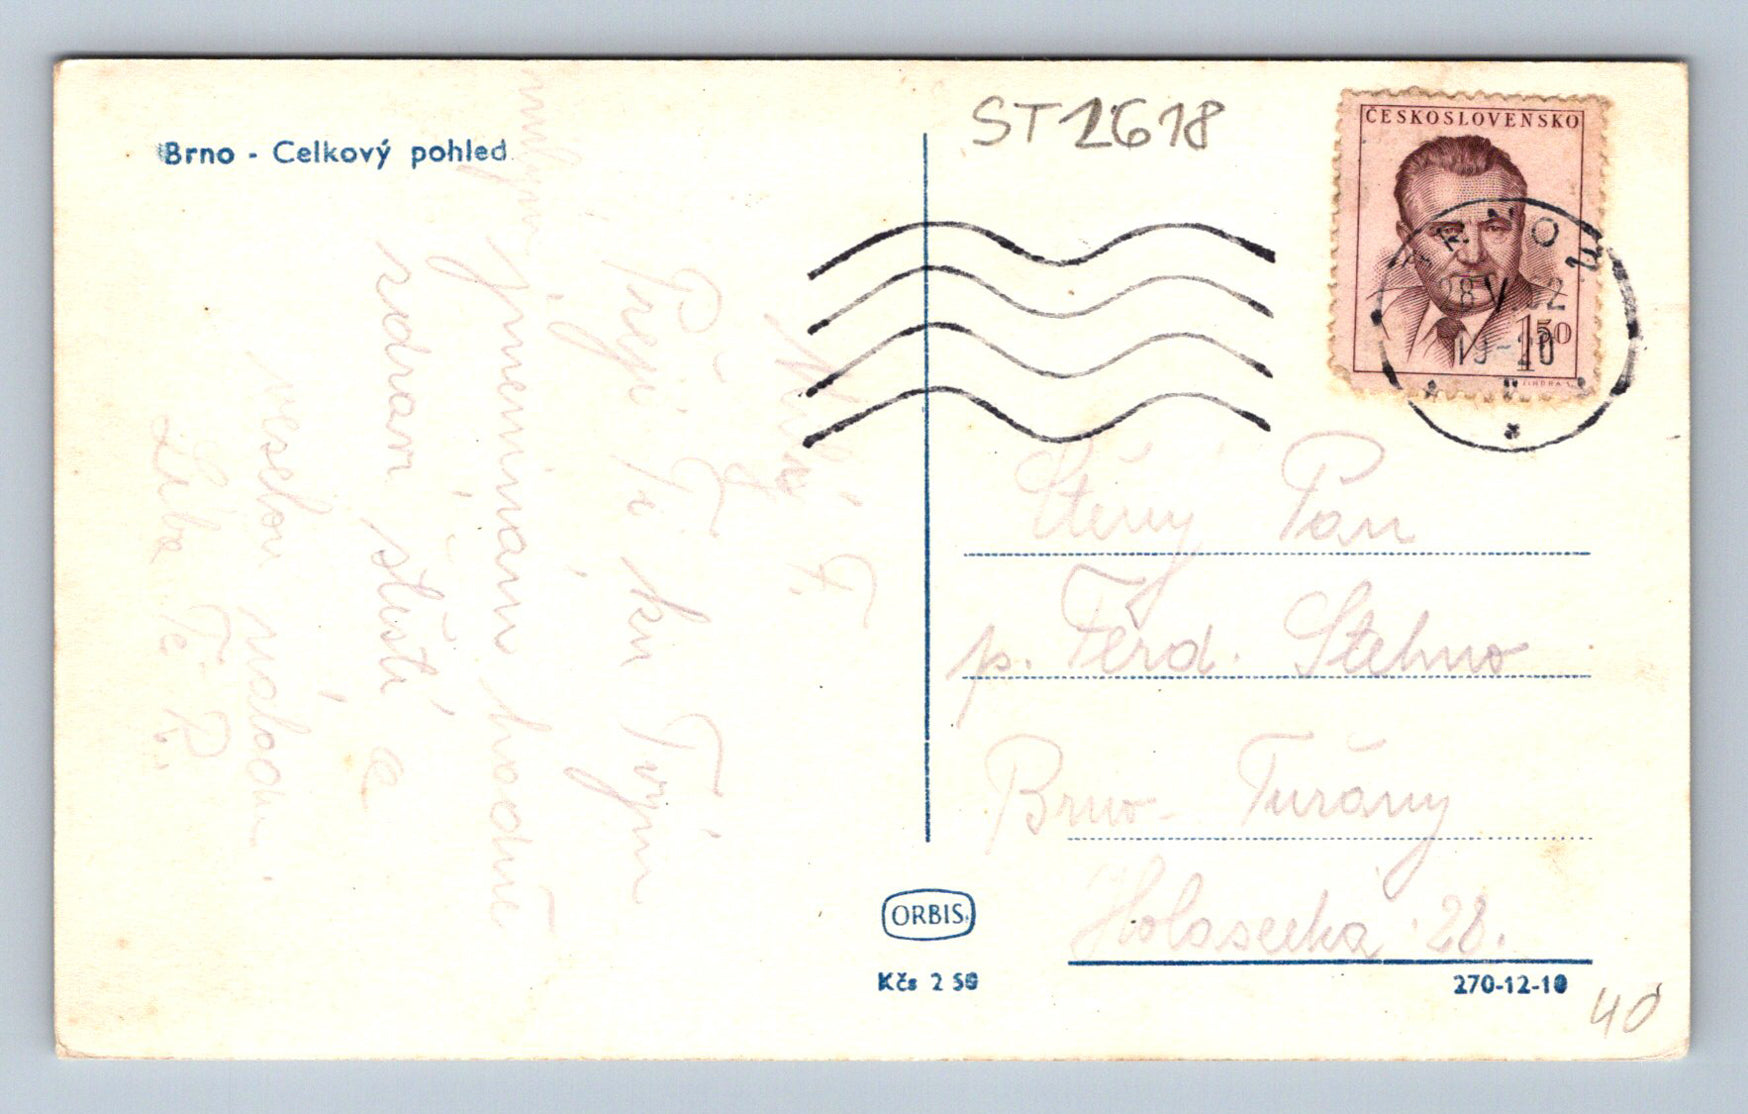 Brno - Celkový pohled
ST 2618
ČESKOSLOVENSKO
1.50
BRNO
28 V 52
Milý F.
Přeji Ti ku Tvým
jmeninám hodně
zdraví štěstí a
veselou náladu.
Líbá Tě R.
Ctěný Pan
p. Ferd. Stehno
Brno - Tuřany
Holasecká 28.
ORBIS
Kčs 2 50
270-12-10
40